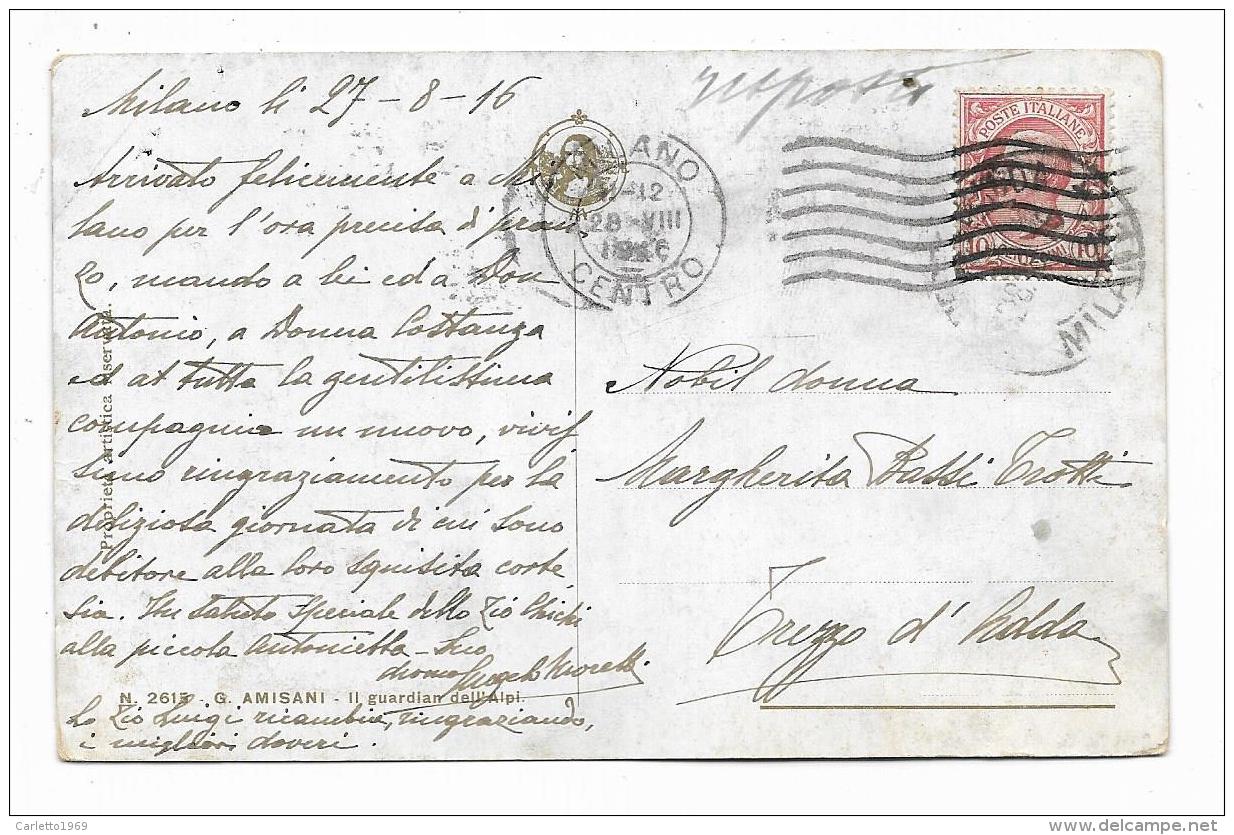 Milano li 27-8-16
risposto
Arrivato felicemente a Mi
lano per l'ora precisa di pran
zo, mando a lei ed a Don
Antonio, a Donna Costanza
ed at tutta la gentilissima
compagnia un nuovo, vivis
simo ringraziamento per la
deliziosa giornata di cui sono
debitore alla loro squisita corte
sia. Un saluto speciale dello Zio Chichi
alla piccola Antonietta - Suo
Moretti
N. 2615 - G. AMISANI - Il guardian dell'Alpi.
Lo Zio Luigi ricambia, ringraziando,
i migliori doveri.
Proprietà artistica riservata.
MILANO
11-12
28 VIII
1916
CENTRO
POSTE ITALIANE
10 10
MILANO
Nobil donna
Margherita Bassi Trotti
Trezzo d'Adda
Carletto1969
www.delcampe.net